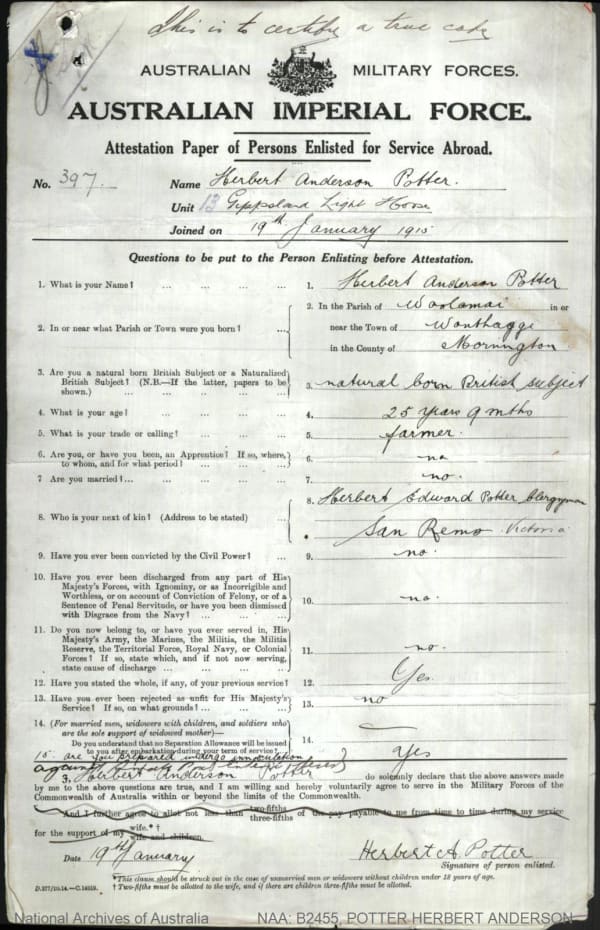 This is to certify a true copy
AUSTRALIAN MILITARY FORCES.
AUSTRALIAN IMPERIAL FORCE.
Attestation Paper of Persons Enlisted for Service Abroad.
No. 397. Name Herbert Anderson Potter.
Unit 13 Gippsland Light Horse
Joined on 19th January 1915
Questions to be put to the Person Enlisting before Attestation.
1. What is your Name? ... ... ... ... 1. Herbert Anderson Potter
2. In or near what Parish or Town were you born? ... 2. In the Parish of Woolamai in or
near the Town of Wonthaggi
in the County of Mornington
3. Are you a natural born British Subject or a Naturalized
British Subject? (N.B.—If the latter, papers to be
shown.) ... ... ... ... 3. natural born British subject
4. What is your age? ... ... ... ... 4. 25 years 9 mths
5. What is your trade or calling? ... ... ... 5. farmer.
6. Are you, or have you been, an Apprentice? If so, where,
to whom, and for what period? ... ... ... 6. no
7 Are you married?... ... ... ... 7. no.
8. Who is your next of kin? (Address to be stated) ... 8. Herbert Edward Potter Clergyman
San Remo Victoria
9. Have you ever been convicted by the Civil Power? ... 9. no.
10. Have you ever been discharged from any part of His
Majesty's Forces, with Ignominy, or as Incorrigible and
Worthless, or on account of Conviction of Felony, or of a
Sentence of Penal Servitude, or have you been dismissed
with Disgrace from the Navy? ... ... ... 10. no.
11. Do you now belong to, or have you ever served in, His
Majesty's Army, the Marines, the Militia, the Militia
Reserve, the Territorial Force, Royal Navy, or Colonial
Forces? If so, state which, and if not now serving,
state cause of discharge ... ... ... 11. no.
12. Have you stated the whole, if any, of your previous service? 12. Yes.
13. Have you ever been rejected as unfit for His Majesty's
Service? If so, on what grounds? ... ... 13. no
14. (For married men, widowers with children, and soldiers who
are the sole support of widowed mother)—
Do you understand that no Separation Allowance will be issued
to you after embarkation during your term of service? 14. —
15. are you prepared undergo innoculation
against Yes
I, Herbert Anderson Potter do solemnly declare that the above answers made
by me to the above questions are true, and I am willing and hereby voluntarily agree to serve in the Military Forces of the
Commonwealth of Australia within or beyond the limits of the Commonwealth.
And I further agree to allot not less than two-fifths three-fifths of the pay payable to me from time to time during my service
for the support of my wife.* † wife and children.
Date 19th January Herbert A. Potter
Signature of person enlisted.
*This clause should be struck out in the case of unmarried men or widowers without children under 18 years of age.
† Two-fifths must be allotted to the wife, and if there are children three-fifths must be allotted.
D.277/10.14.—C.14519.
National Archives of Australia NAA: B2455, POTTER HERBERT ANDERSON